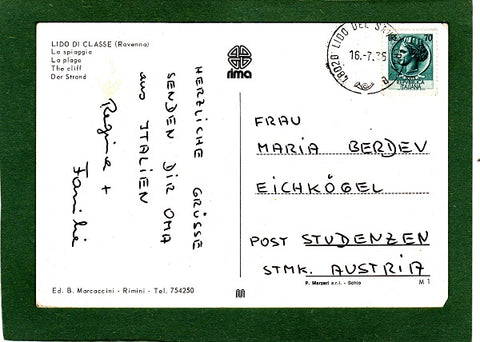 LIDO DI CLASSE (Ravenna)
La spiaggia
La plage
The cliff
Der Strand
rima
HERZLICHE GRÜSSE
SENDEN DIR OMA
aus ITALIEN
Regina +
Familie
48020 LIDO DEL
16.-7.
70
REPUBBLICA
ITALIANA
FRAU
MARIA BERDEV
EICHKÖGEL
POST STUDENZEN
STMK. AUSTRIA
Ed. B. Marcaccini - Rimini - Tel. 754250
P. Marzari s.r.l. - Schio
M 1